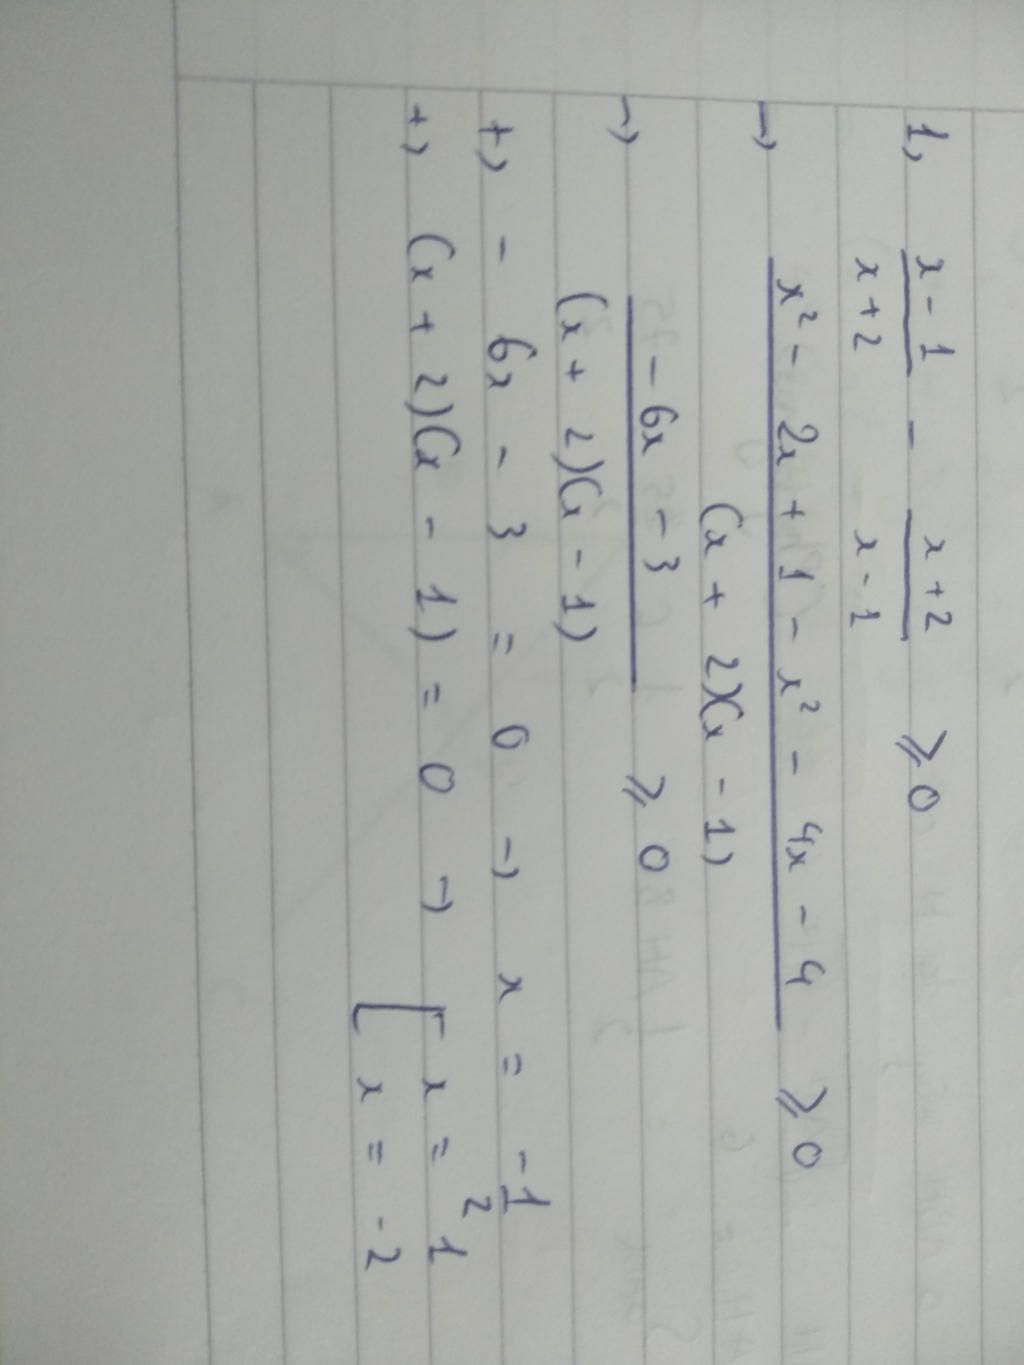 1, x - 1 / x + 2 - x + 2 / x - 1 ⩾ 0
→ x² - 2x + 1 - x² - 4x - 4 / (x + 2)(x - 1) ⩾ 0
→ - 6x - 3 / (x + 2)(x - 1) ⩾ 0
+, - 6x - 3 = 0 → x = -1/2
+, (x + 2)(x - 1) = 0 → [ x = 1
x = -2